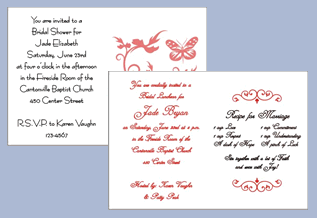 You are invited to a
Bridal Shower for
Jade Elizabeth
Saturday, June 23rd
at four o'clock in the afternoon
in the Fireside Room of the
Centonville Baptist Church
450 Center Street
R.S.V.P. to Karen Vaughn
123-4567
You are cordially invited to a
Bridal Luncheon for
Jade Bryan
on Saturday, June 22nd at 2 p.m.
in the Fireside Room of the
Centonville Baptist Church
450 Center Street
Hosted by: Karen Vaughn
& Patty Park
Recipe for Marriage
1 cup Love 1 cup Commitment
1 cup Respect 1 cup Understanding
A dash of Hope A pinch of Luck
Mix together with a lot of Faith
and serve with Joy!